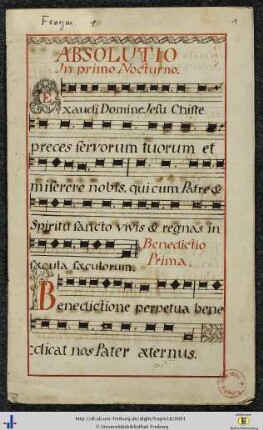 Fragm. 1
1
ABSOLUTIO
In primo Nocturno.
Exaudi Domine Jesu Christe
preces servorum tuorum et
miserere nobis, qui cum Patre &
Spiritu sancto vivis & regnas in
Benedictio
sæcula sæculorum. Prima.
Benedictione perpetua bene
dicat nos Pater æternus.
http://dl.ub.uni-freiburg.de/diglit/fragm1/0001
© Universitätsbibliothek Freiburg